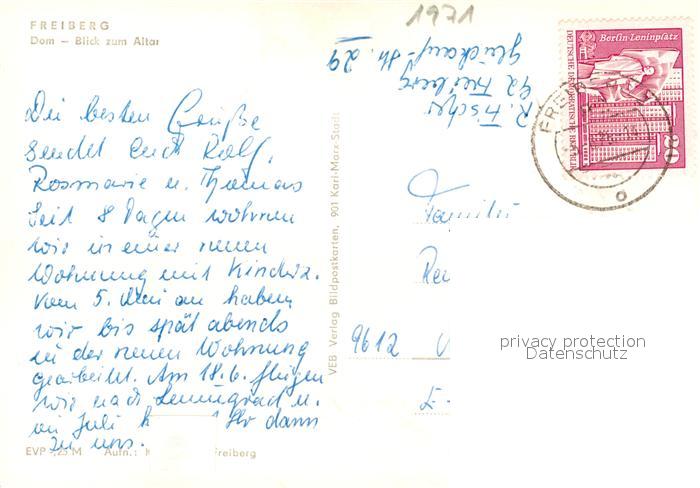 FREIBERG
Dom – Blick zum Altar
1971
R. Fischer
92 Freiberg
Glückauf-Str. 29
Berlin-Leninplatz
DEUTSCHE DEMOKRATISCHE REPUBLIK
20
Die besten Grüße
sendet Euch Rolf,
Rosmarie u. Thomas
Seit 8 Tagen wohnen
wir in einer neuen
Wohnung mit Kinderz.
Vom 5. Mai an haben
wir bis spät abends
in der neuen Wohnung
gearbeitet. Am 18.6. fliegen
wir nach Leningrad u.
im Juli k Ihr dann
zu uns.
VEB Verlag Bildpostkarten, 901 Karl-Marx-Stadt
Familie
9612
privacy protection
Datenschutz
EVP -,25 M Aufn.: Freiberg